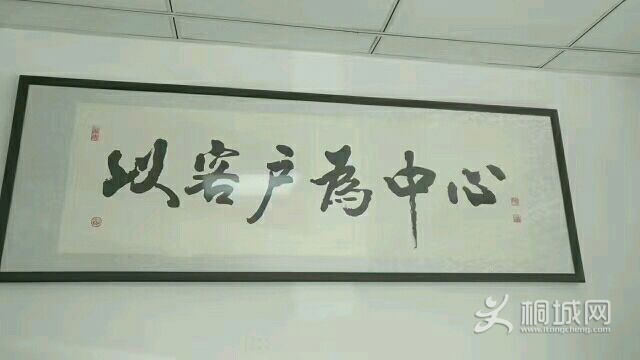 以客户為中心
桐城网
www.itongcheng.com